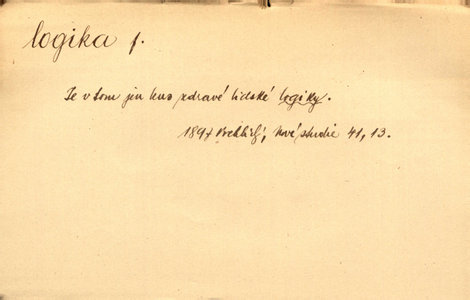 logika f.
Je v tom jen kus zdravé lidské logiky.
1897 Vrchlický, Nové studie 41, 13.